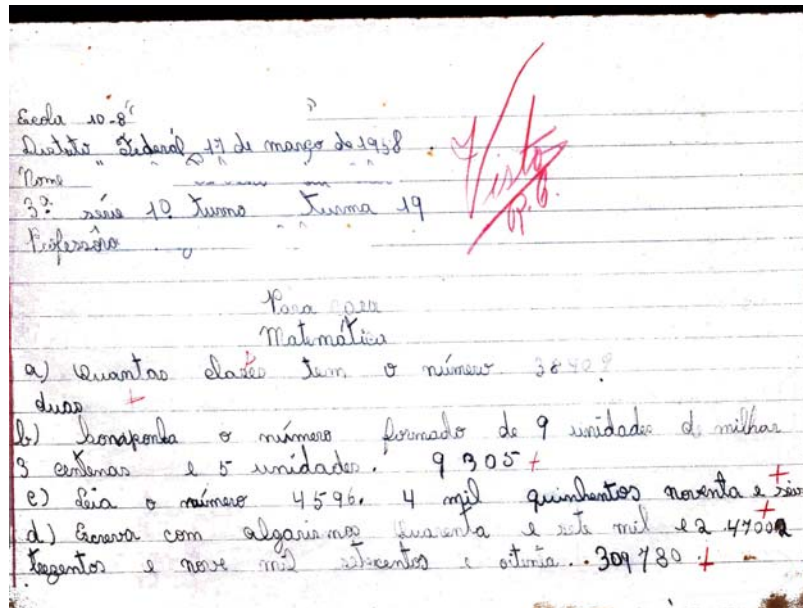 Escola 10-8
Distrito Federal 17 de março de 1958
Nome
3ª série 1º turno turma 19
Professôra
Visto
Para casa
Matemática
a) Quantas clases tem o número 3840?
duas
b) Componha o número formado de 9 unidades de milhar
3 centenas e 5 unidades. 9 305
c) Leia o número 4596. 4 mil quinhentos noventa e seis
d) Escreva com algarismos quarenta e sete mil e 2. 47002
trezentos e nove mil setecentos e oitenta. 309780